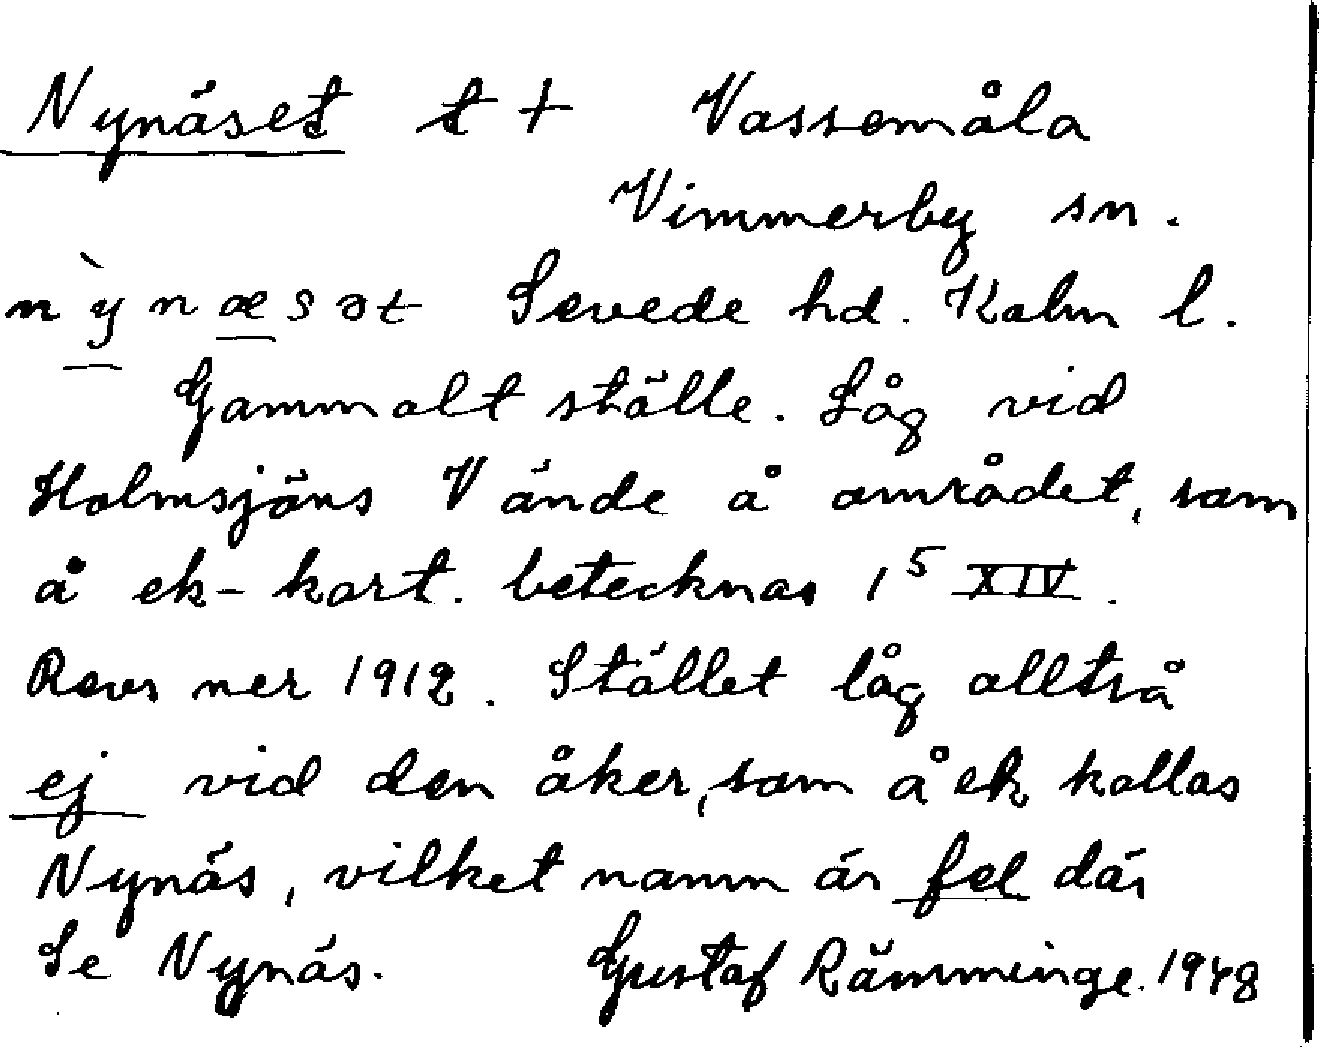 Nynäset t † Vassemåla
Vimmerby sn.
nỳnæsət Sevede hd. Kalm l.
Gammalt ställe. Låg vid
Holmsjöns V ände å området, som
å ek-kart. betecknas 1⁵ XIV.
Revs ner 1912. Stället låg alltså
ej vid den åker, som å ek kallas
Nynäs, vilket namn är fel där
Se Nynäs. Gustaf Rämminge. 1948